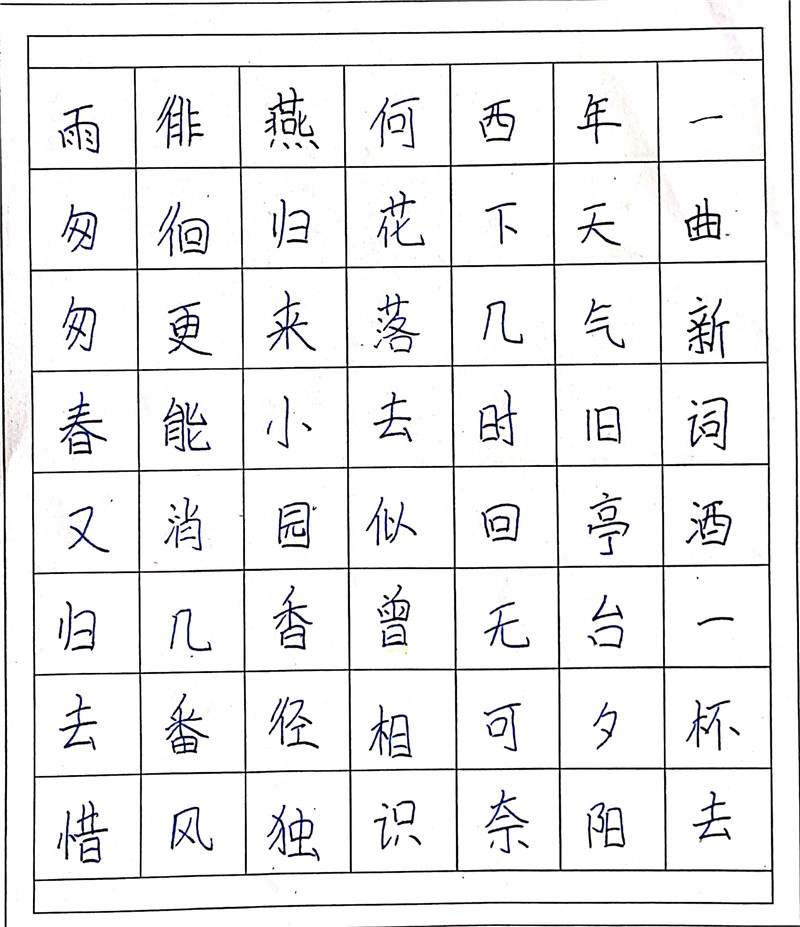 一曲新词酒一杯去
年天气旧亭台夕阳
西下几时回无可奈
何花落去似曾相识
燕归来小园香径独
徘徊更能消几番风
雨匆匆春又归去惜